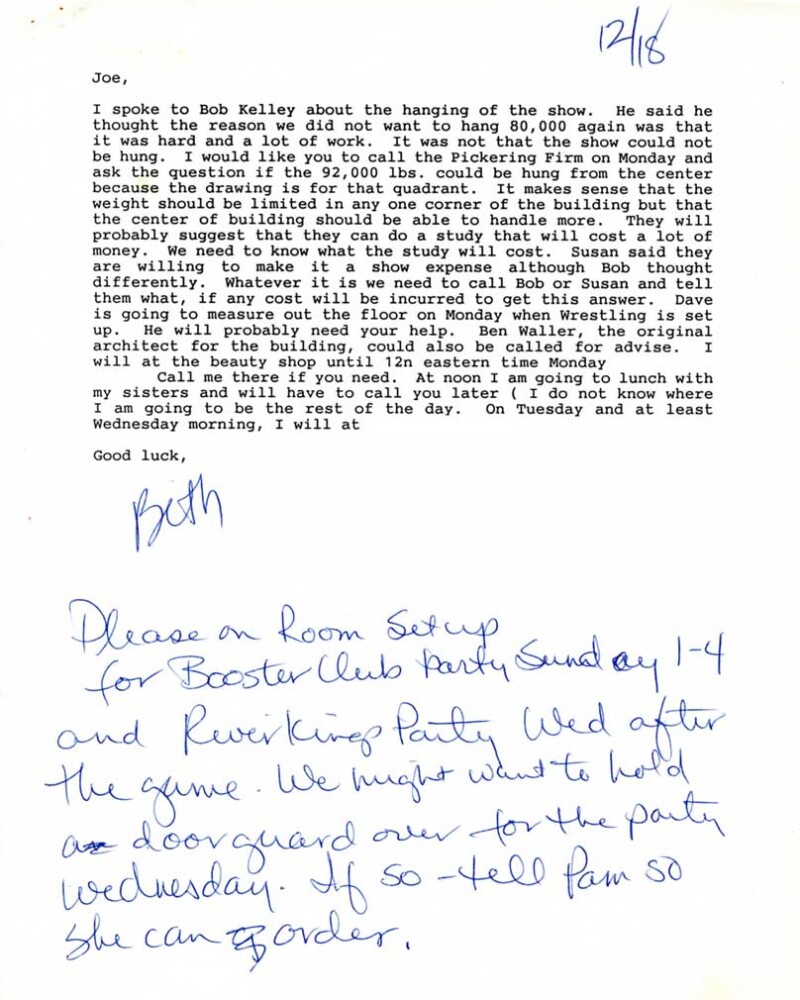 12/18
Joe,
I spoke to Bob Kelley about the hanging of the show. He said he
thought the reason we did not want to hang 80,000 again was that
it was hard and a lot of work. It was not that the show could not
be hung. I would like you to call the Pickering Firm on Monday and
ask the question if the 92,000 lbs. could be hung from the center
because the drawing is for that quadrant. It makes sense that the
weight should be limited in any one corner of the building but that
the center of building should be able to handle more. They will
probably suggest that they can do a study that will cost a lot of
money. We need to know what the study will cost. Susan said they
are willing to make it a show expense although Bob thought
differently. Whatever it is we need to call Bob or Susan and tell
them what, if any cost will be incurred to get this answer. Dave
is going to measure out the floor on Monday when Wrestling is set
up. He will probably need your help. Ben Waller, the original
architect for the building, could also be called for advise. I
will at the beauty shop until 12n eastern time Monday
Call me there if you need. At noon I am going to lunch with
my sisters and will have to call you later ( I do not know where
I am going to be the rest of the day. On Tuesday and at least
Wednesday morning, I will at
Good luck,
Beth
Please on Room Setup
for Booster Club Party Sunday 1-4
and RiverKings Party Wed after
the game. We might want to hold
a door guard over for the party
Wednesday. If so - tell Pam so
she can order.